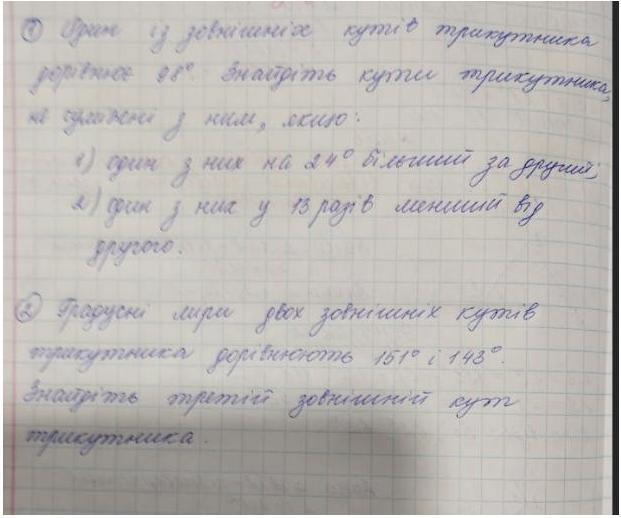 ① Один із зовнішніх кутів трикутника
дорівнює 98°. Знайдіть кути трикутника,
не суміжні з ним, якщо:
1) один з них на 24° більший за другий;
2) один з них у 13 разів менший від
другого.
② Градусні міри двох зовнішніх кутів
трикутника дорівнюють 151° і 143°.
Знайдіть третій зовнішній кут
трикутника.